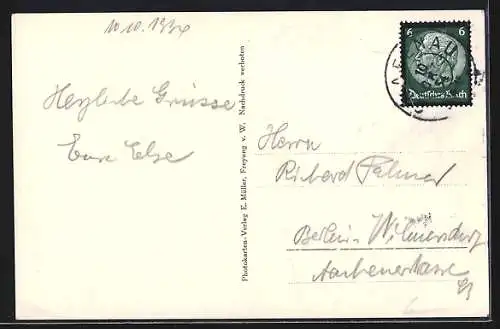 10.10.1934
Herzliche Grüsse
Eure Else
Photokarten-Verlag E. Müller, Freyung v. W. Nachdruck verboten
6 6
Deutsches Reich
Herrn
Richard Palmer
Berlin-Wilmersdorf
Aachenerstrasse